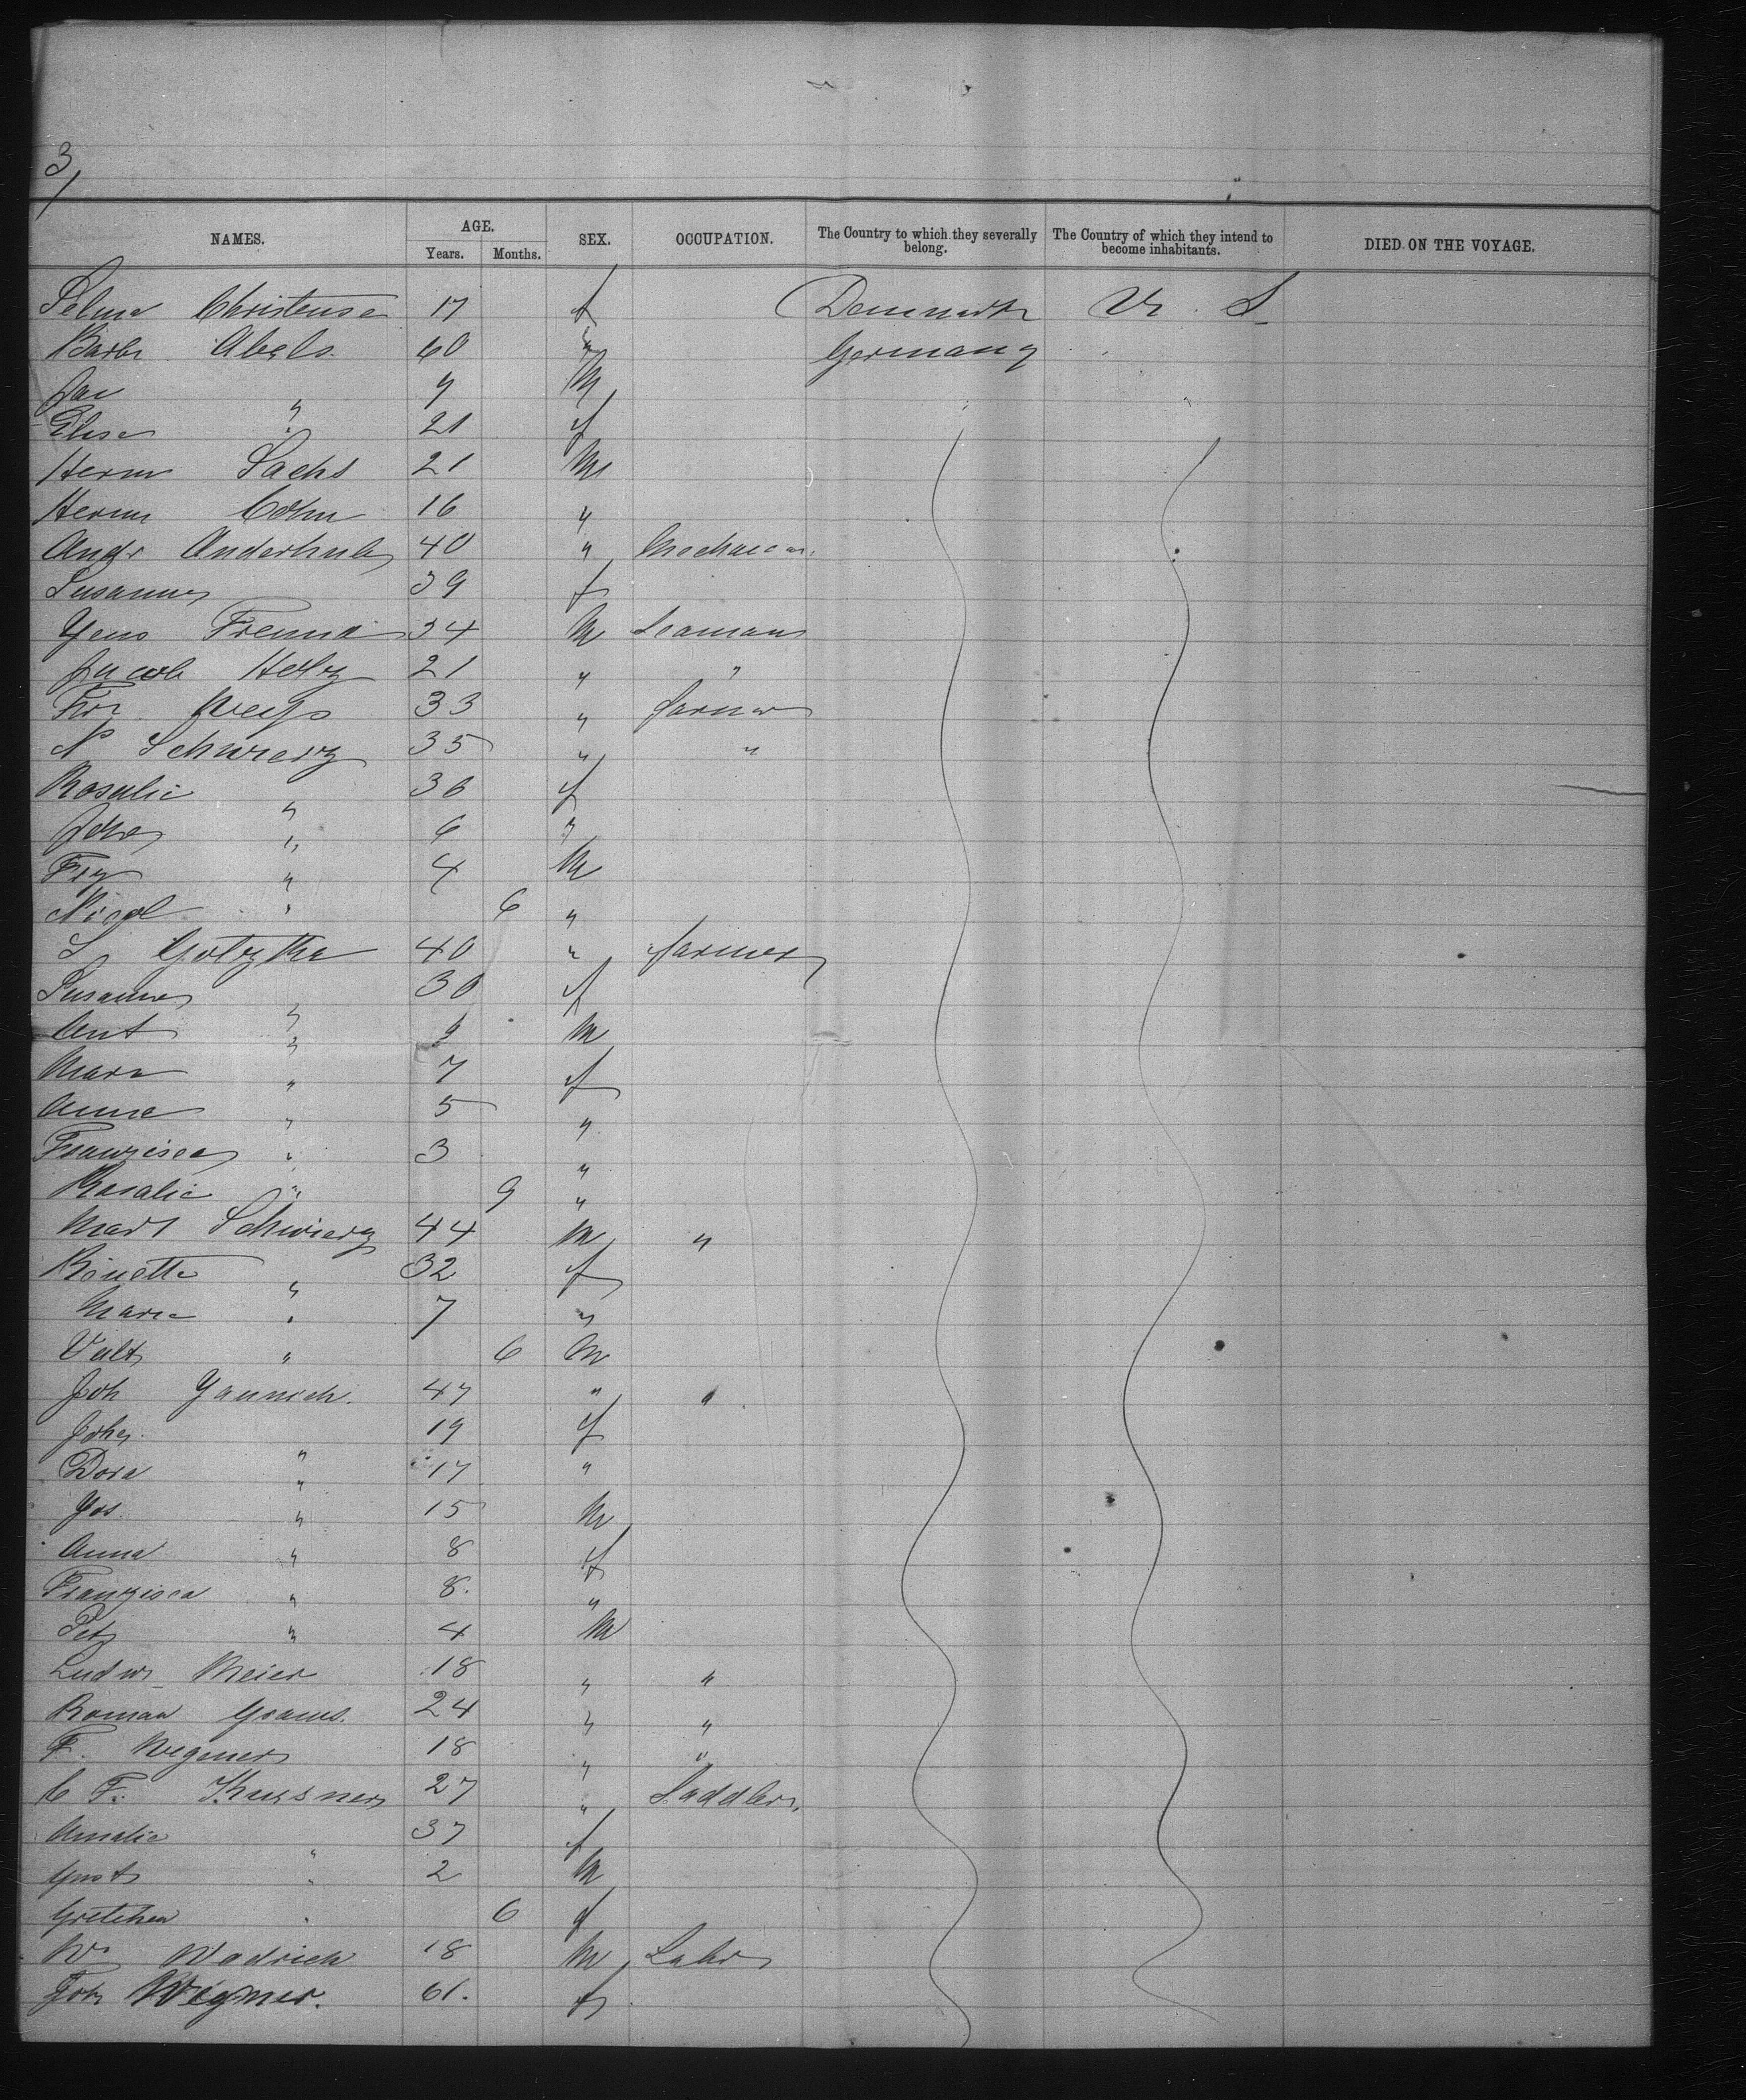 3/
NAMES. AGE. Years. Months. SEX. OCCUPATION. The Country to which they severally belong. The Country of which they intend to become inhabitants. DIED ON THE VOYAGE.
Selma Christense 17 f Denmark U. S
Barb Abels. 60 " Germany
Jac " 9 M
Elise " 21 f
Herm Sachs 21 M
Herm Cohn 16 "
Andr Anderhub 40 "
Susanne 39 f
Yens Freund 34 M Seaman
Jacob Holz 21 " "
33 " farmer
N Schwierz 35 " "
Rosalie " 36 f
Joha " 6 "
Frz " 4 M
Nicol " 6 "
S 40 " farmer
Susanna " 30 f
Ant " 9 M
Mara " 7 f
Anna " 5 "
Franzisca " 3 "
Rosalie " 9 "
Mart Schwierz 44 M "
" 32 f
Marie " 7 "
Valt " 6 M
Joh Yannich. 47 " "
Joha " 19 f
Dora " 17 "
Jos. " 15 M
Anna " 8 f
Franzisca " 8. "
Pet " 4 M
Ludw Meier 18 " "
Roman Grams. 24 " "
F. Wegener 18 " "
C F. 27 " Saddler.
Amalie " 37 f
Gust " 2 M
Gretchen " 6 f
Wm Wadrich 18 M Labr
Joh Wegner. 61. f